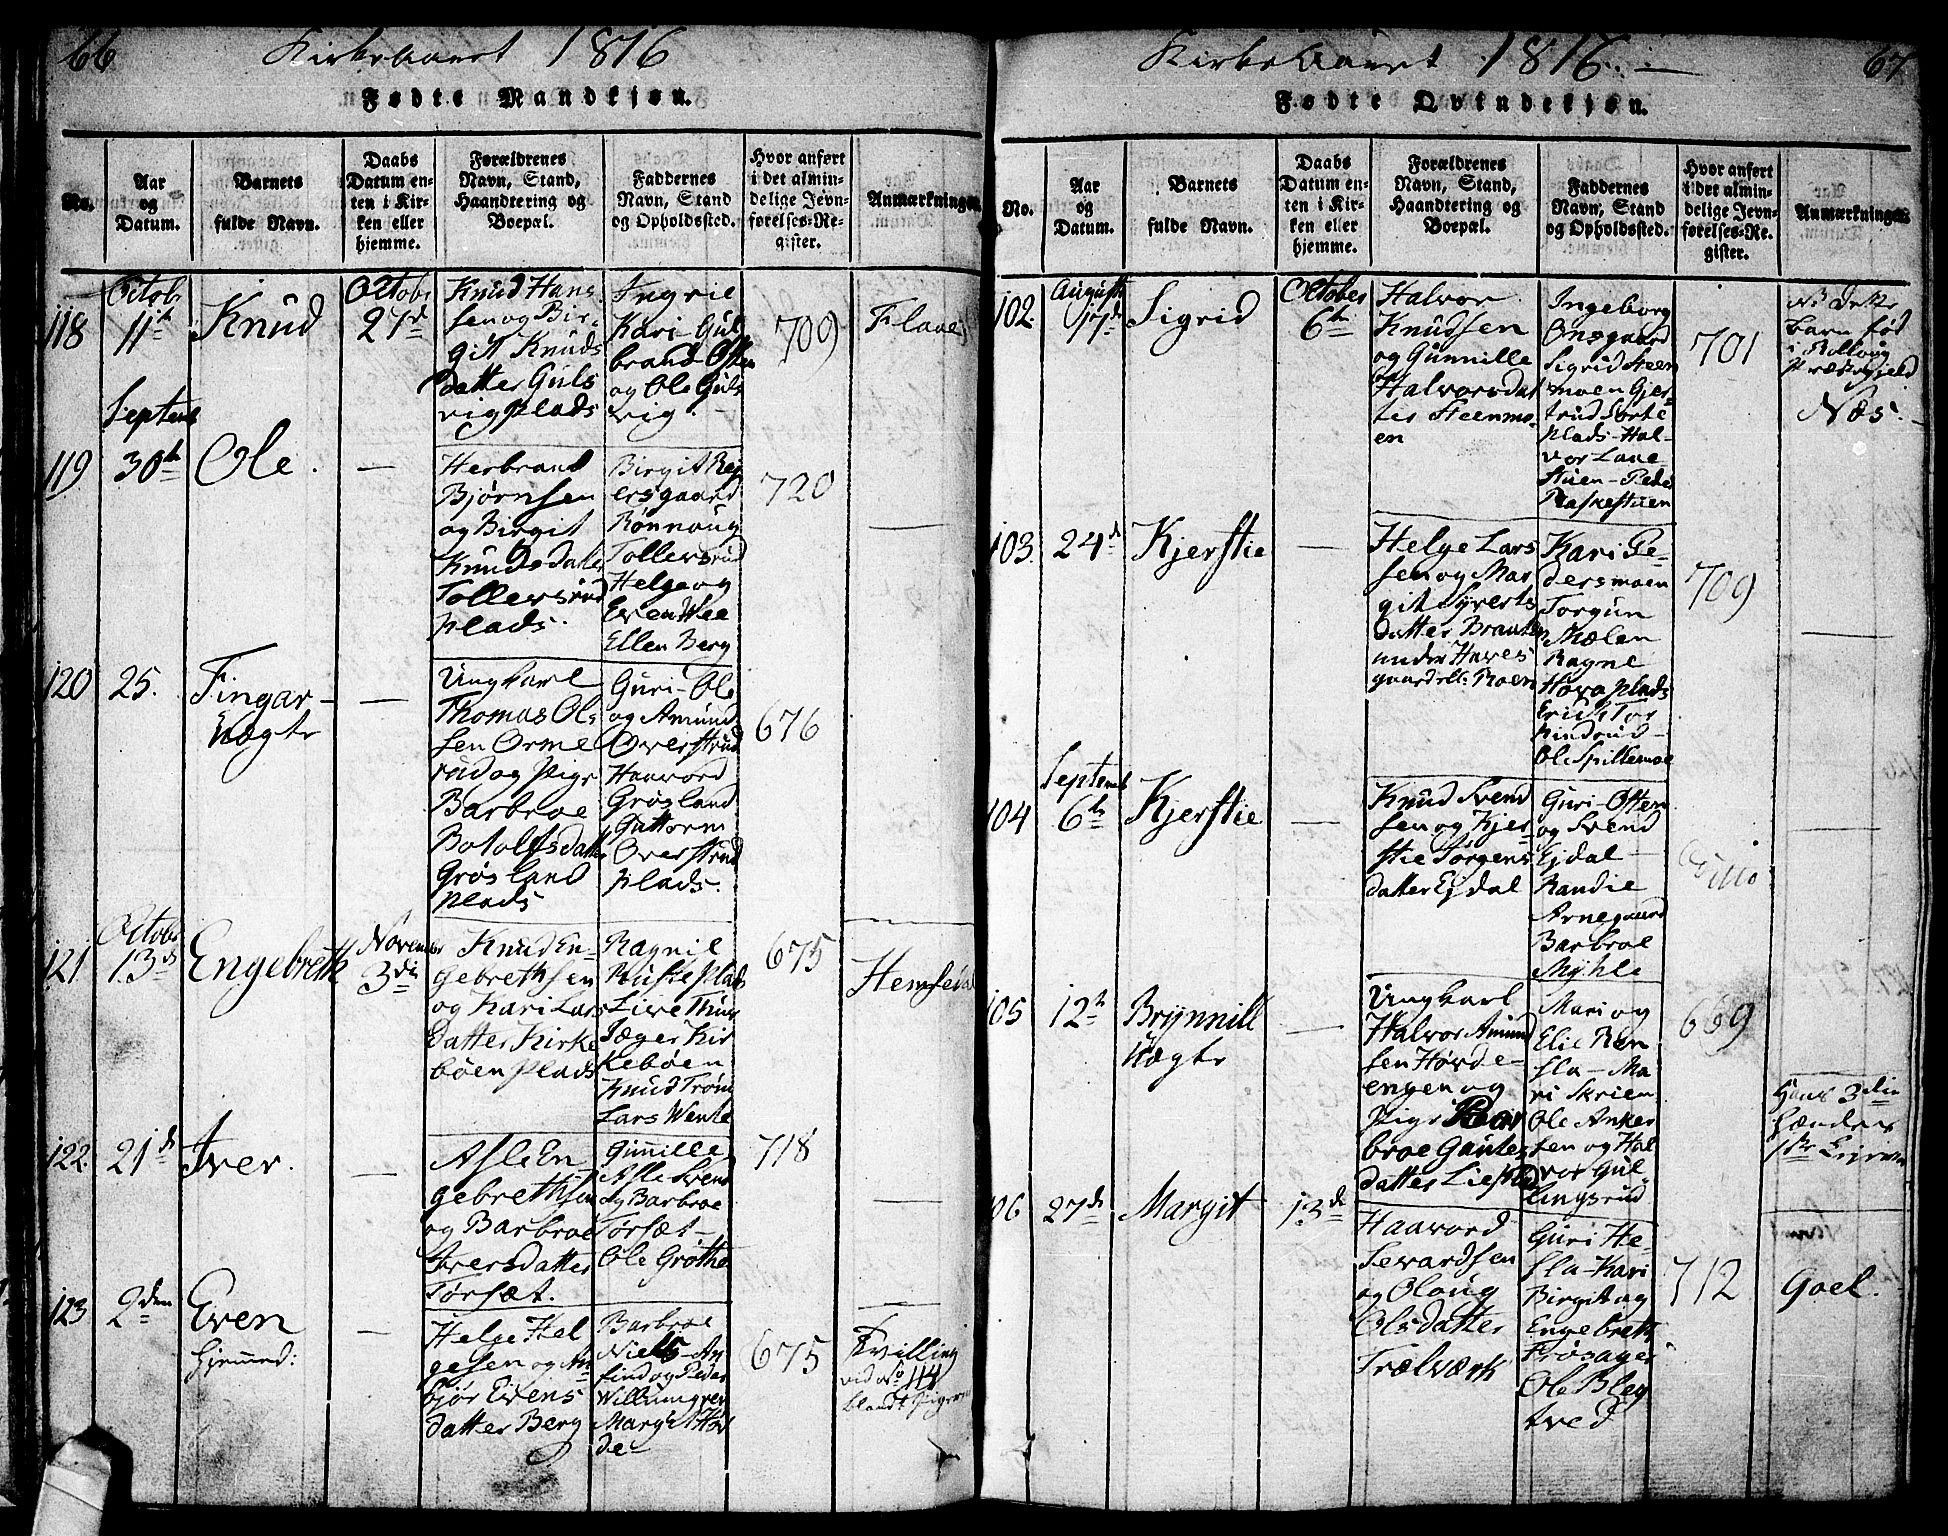 66
Kirkeaaret 1816
Fødte Mandkjøn.
No.
Aar
og
Datum.
Barnets
fulde Navn.
Daabs
Datum en-
ten i Kir-
ken eller
hjemme.
Forældrenes
Navn, Stand,
Haandtering og
Boepæl.
Faddernes
Navn, Stand
og Opholdssted.
Hvor anført
i det almin-
delige Jevn-
førelses-Re-
gister.
Anmærkninger
118
Octobr
11te
Knud
Octobr
27d
Knud Hans
sen og Bir-
git Knuds
datter Guls
vig plads
Ingric
Kari - Gul
brand Often
og Ole Guls
vig -
709
Flaae
119
Septemb
30te
Ole.
—
Herbrand
Bjørnsen
og Birgit
Knudsdatter
Tollevsrud
plads.
Birgit Rej
ersgaard
Rønnoug
Tollevsrud
Helge og
Even
Ellen Berg
720
—
120
25.
Fingar-
Uægte
—
Ungkarl
Thomas Ols
sen Orme
rud og Pige
Barbroe
Botolfsdatter
Grøsland
plads
Guri - Ole
og Amund
Overstrud
Haavord
Grøsland
Guttorm
Overstrud
plads.
676
121
Octobr
13de
Engebreth
Novembr
3die
Knud En-
gebrethsen
og Kari Lars
datter Kirke
bøen plads
Ragnil
plads
Live
Jæger Kir
kebøen
Knud Trøm
Lars Wente
675
Hemsedal
122.
21d
Iver.
—
Asle En
gebrethsen
og Barbroe
Iversdatter
Torsæt.
Gunille
Asle Svend
og Barbroe
Torsæt -
Ole Grøthe
718
—
123
2den
Even
hjemmed:
—
Helge Hel
gesen og An
bjør Evens
datter Berg
Barbroe
Niels - An
find og Peder
Willumgven
Margit Høv
de
675
Tvilling
vid No 114
blandt Pigerne
67
Kirkeaaret 1816. —
Fødte Qvindekjøn.
No.
Aar
og
Datum.
Barnets
fulde Navn.
Daabs
Datum en-
ten i Kir-
ken eller
hjemme.
Forældrenes
Navn, Stand,
Haandtering og
Boepæl.
Faddernes
Navn, Stand
og Opholdssted.
Hvor anført
i det almin-
delige Jevn-
førelses-Re-
gister.
Anmærkninger
102.
Augusti
17d
Sigrid
October
6te
Halvor
Knudsen
og Gunnille
Halvorsdat
ter Steenmo-
en
Ingeborg
Onsgaard
Sigrid Steen
moen Gjer-
trud Sorte
plads - Hal-
vor Lane
stuen - Peder
Plaskestuen
701
NB Dette
Barn fød
i Rollaug
Præstegield
Næs.
103.
24d
Kjerstie
—
Helge Lars
sen og Mar
git Syverts
datter Brauten
under Haves
gaard
Kari Pe-
dersmoen
Torgun
Mælen
Ragne
Hova plads
Erich Tor
kindsrud -
Ole Spillemoe
709
—
104
Septemb
6te
Kjerstie
—
Knud Svend
sen og Kjer-
stie Jørgens
datter Ejdal
Guri - Often
og Svend
Ejdal -
Randie
Arnegaard
Barbroe
Myhle
—
105
12te
Brynnill
Uægte
—
Ungkarl
Halvor Amund
sen Høvde-
engen og
Pige Bar
broe Gautes
datter
Mari og
Elie Ren
sla - Ma
ri Skrien
Ole Anker
sen og Hal
vor Gul
lingsrud
669
Hans 3die
106
27de
Margit
13de
Haavord
Sevardsen
og Oloug
Olsdatter
Trælværk
Guri He-
sla - Kari
Birgit og
Engebreth
Frøsager
Ole Bleg
tved
712
Goel.